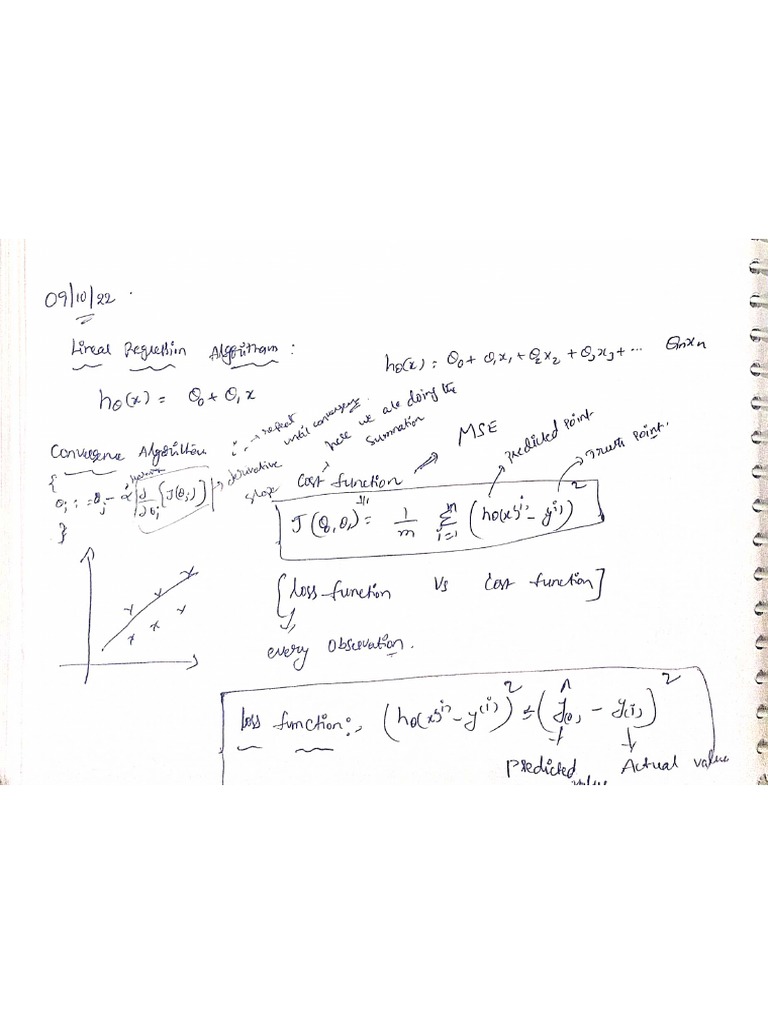 09/10/22 .
Lineal Regression Algorithm :
hθ(x) = θ0 + θ1x
hθ(x) = θ0 + θ1x1 + θ2x2 + θ3x3 + ... θnxn
Convergence Algorithm → repeat until convergence.
{
θj := θj - α ∂/∂θj {J(θj)} → derivative slope
}
here we are doing the summation
Cost function → MSE
Predicted point
Truth point.
J(θ0, θ1) = 1/m Σ i=1 m (hθ(x)^(i) - y^(i))^2
[Loss function Vs Cost function]
every observation.
Loss function:, (hθ(x)^(i) - y^(i))^2 (ŷ(i) - y(i))^2
Predicted value
Actual value